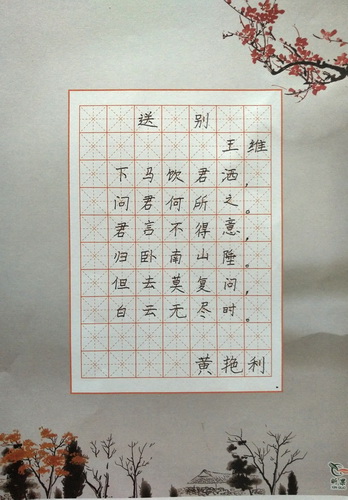 送别
王维
下马饮君洒，
问君何所之。
君言不得意，
归卧南山陲。
但去莫复问，
白云无尽时。
黄艳利